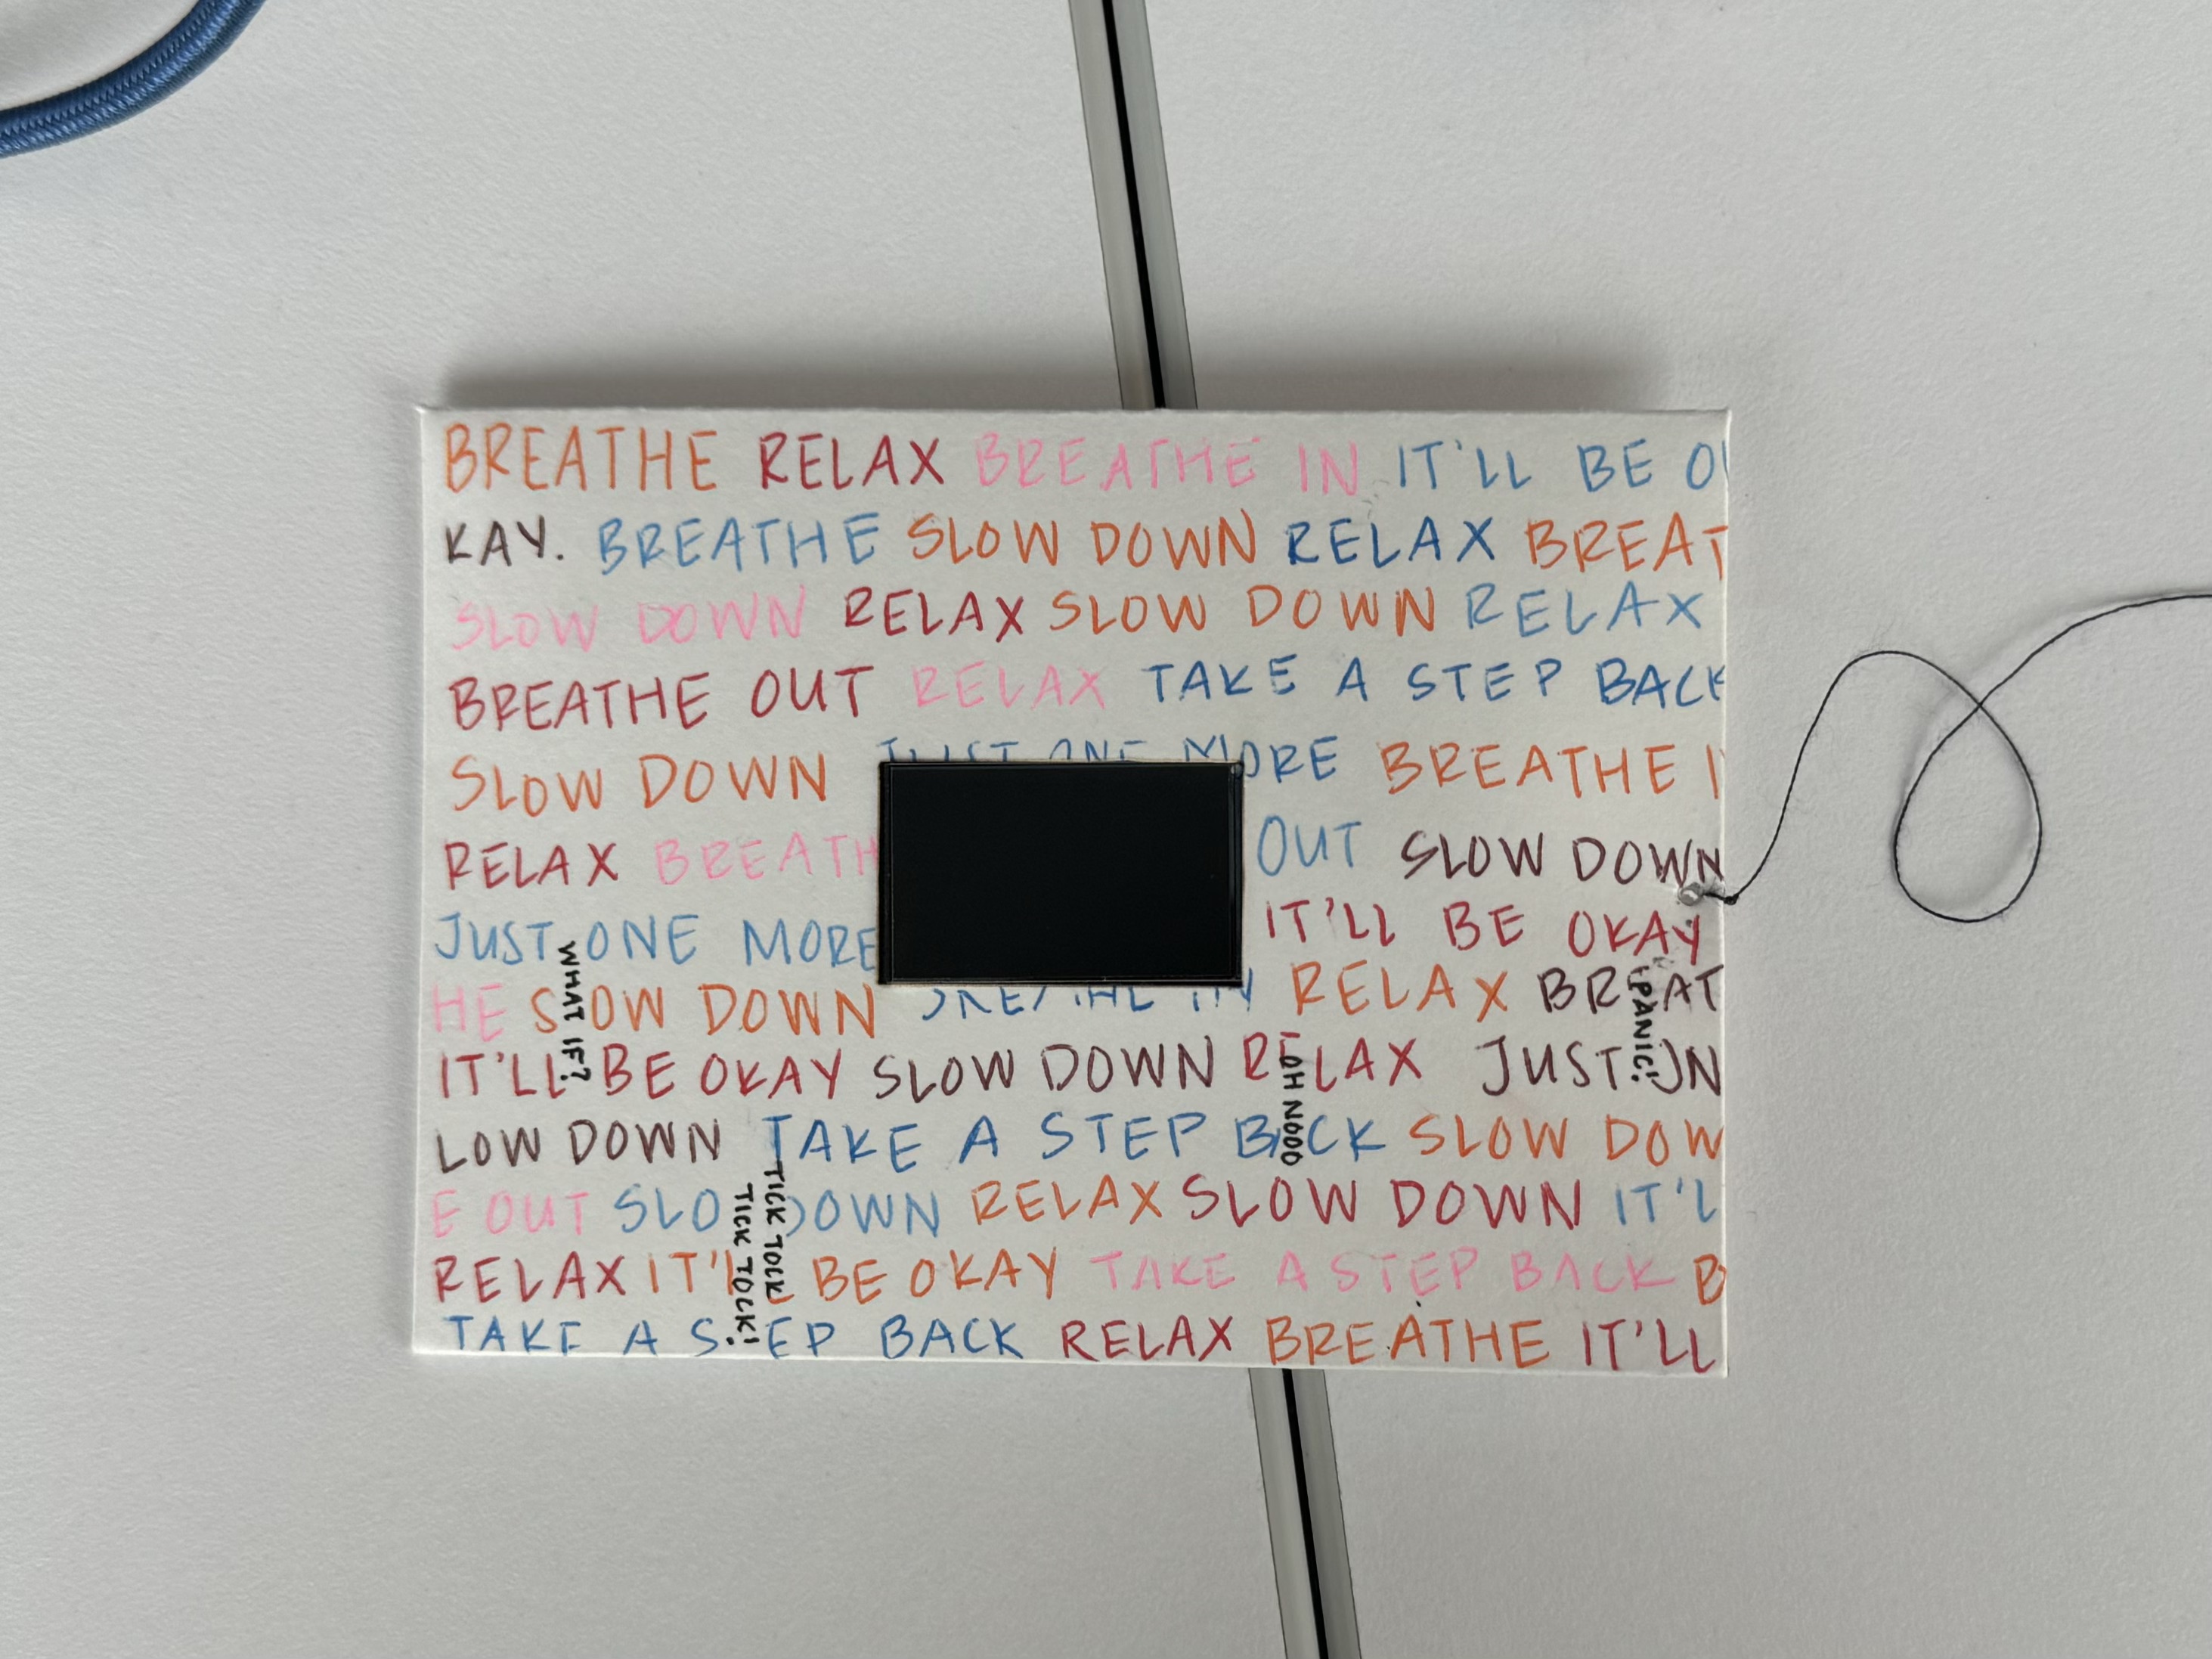 BREATHE RELAX BREATHE IN IT'LL BE O
KAY. BREATHE SLOW DOWN RELAX BREAT
SLOW DOWN RELAX SLOW DOWN RELAX
BREATHE OUT RELAX TAKE A STEP BACK
SLOW DOWN JUST ONE MORE BREATHE I
RELAX BREATH OUT SLOW DOWN
JUST ONE MORE IT'LL BE OKAY
HE SLOW DOWN BREATHE IN RELAX BREAT
IT'LL BE OKAY SLOW DOWN RELAX JUST ON
LOW DOWN TAKE A STEP BACK SLOW DOW
E OUT SLOW DOWN RELAX SLOW DOWN IT'L
RELAX IT'LL BE OKAY TAKE A STEP BACK B
TAKE A STEP BACK RELAX BREATHE IT'LL
WHAT IF?
TICK TOCK
TICK TOCK!
OH NOOO
PANIC!